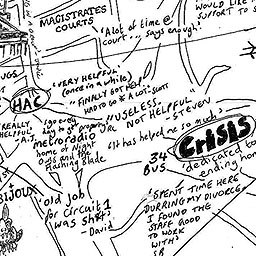 MAGISTRATES
COURTS
'A lot of time @
court... says enough'
WOULD LIKE
SUPPORT TO S
JGS
HAC
'VERY HELPFUL'
(once in a while)
"FINALLY GOT HELP
HAD TO GO * A LOT" - SCOTT
"USELESS,
NOT HELPFUL"
- STEVEN
'REALLY
HELPFUL'
'I go every
day to get
metroradio
home of Night
Owls and the
Flashing Blade
'It has helped me so much'
CRISIS
'dedicated to
ending home
34
BUS
BIJOUX
'old job
for Circuit 1
was shit'
- David
'SPENT TIME HERE
DURRING MY DIVORCE
I FOUND THE
STAFF GOOD
TO WORK
WITH'
SB